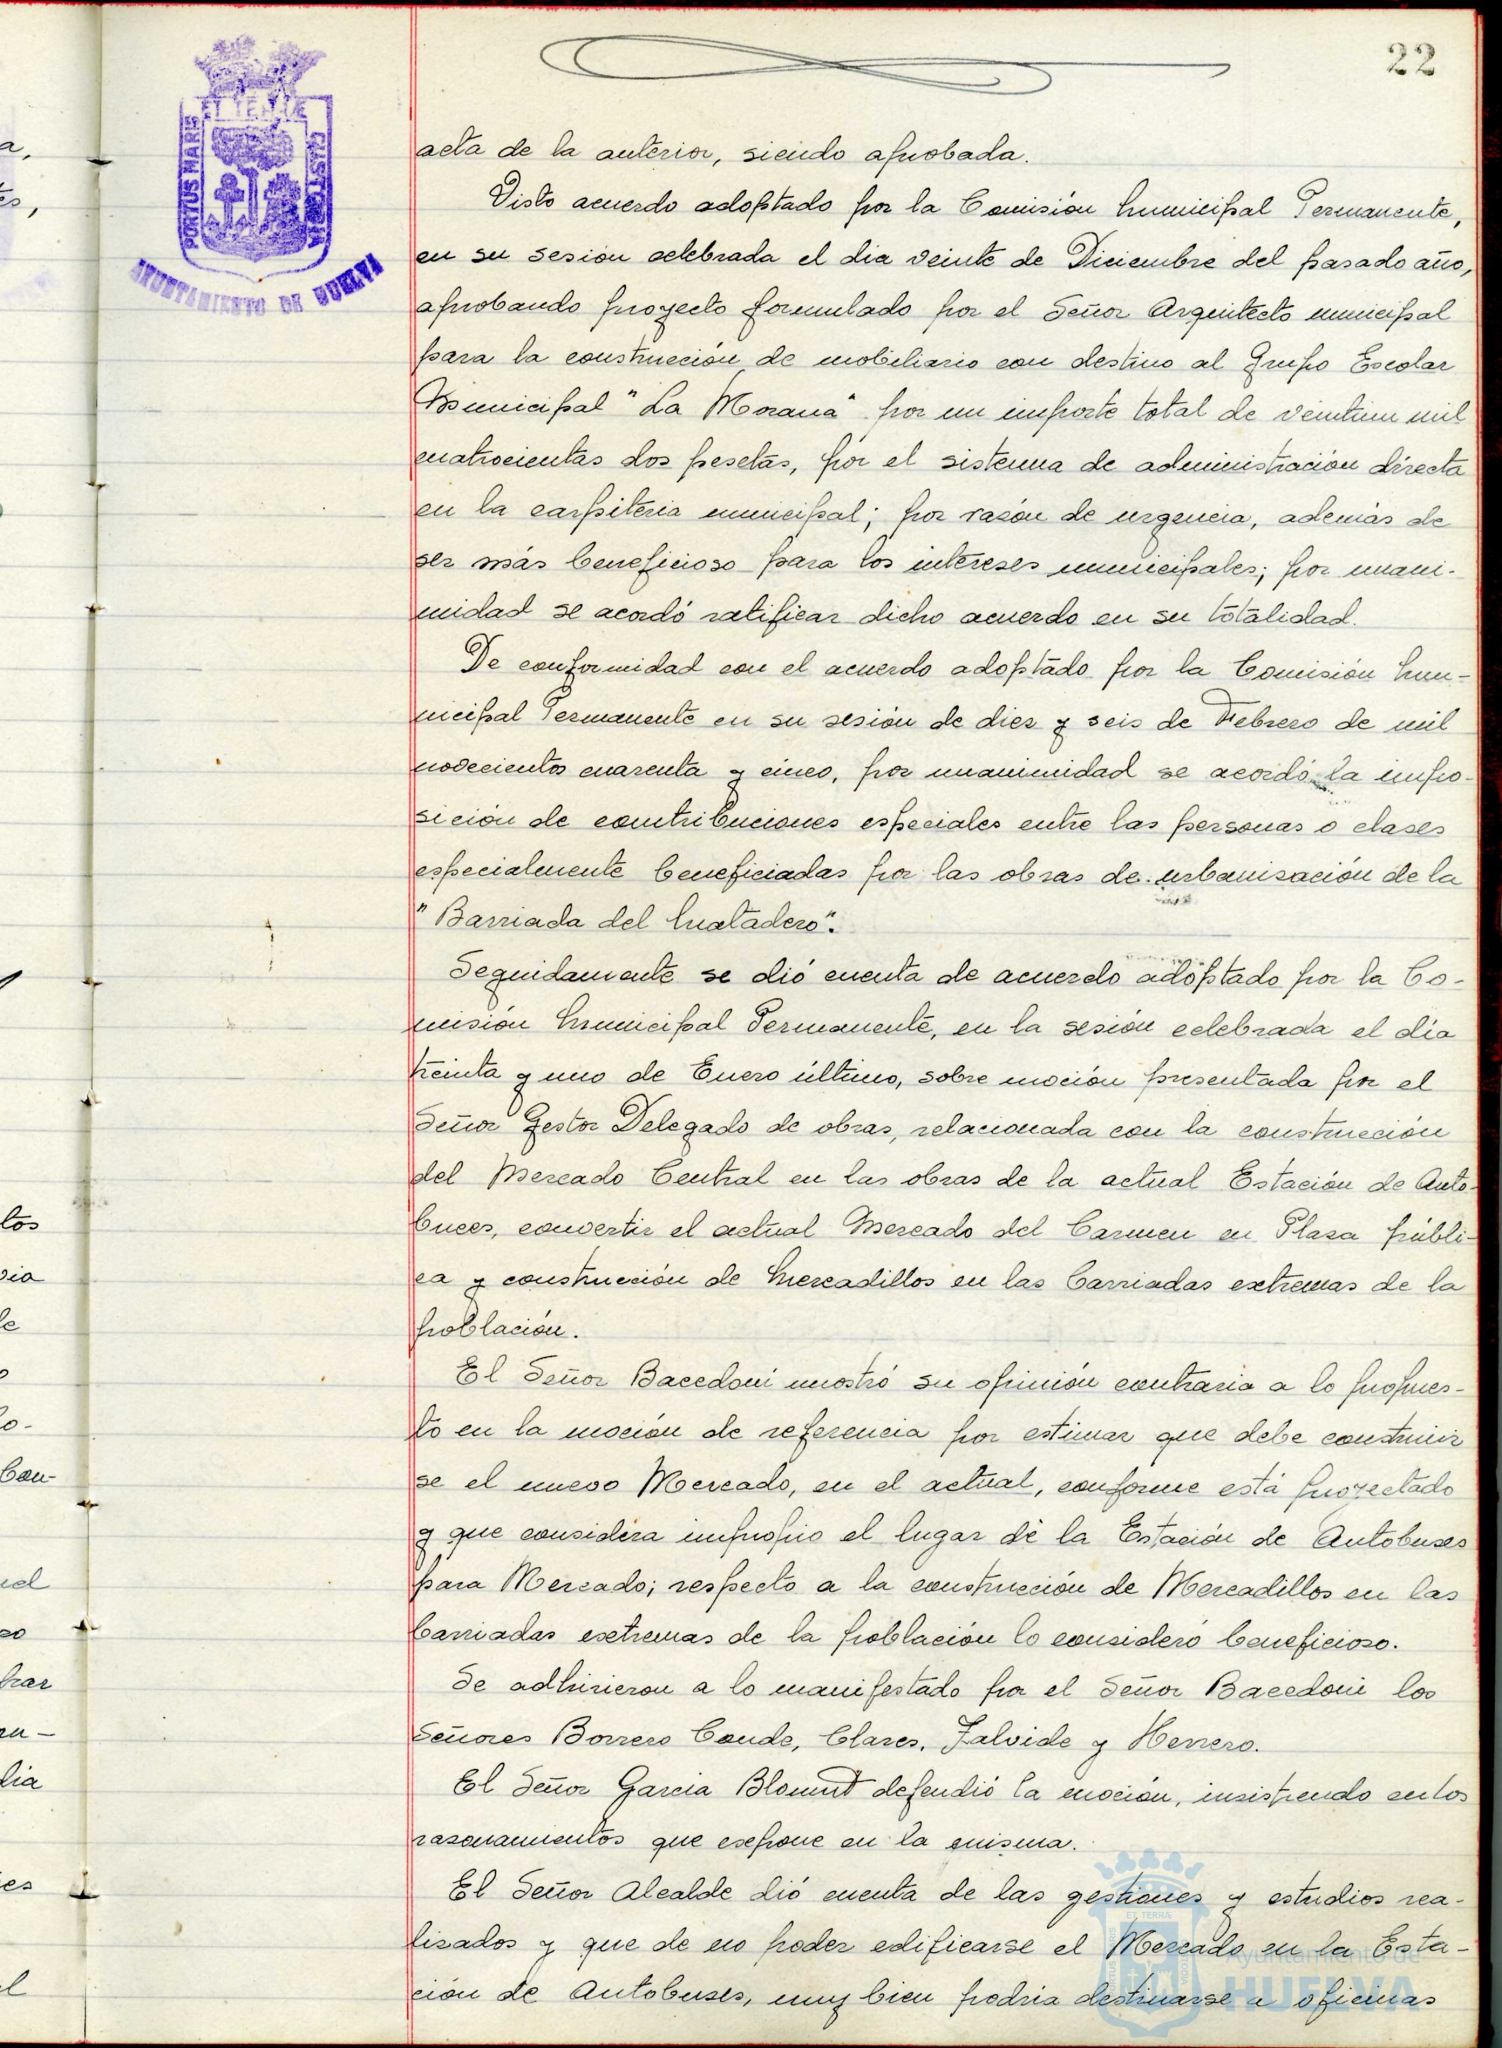 22
ET TERRE
PORTUS MARIS
CUSTODIA
AYUNTAMIENTO DE HUELVA
acta de la anterior, siendo aprobada.
Visto acuerdo adoptado por la Comisión Municipal Permanente,
en su sesión celebrada el dia veinte de Diciembre del pasado año,
aprobando proyecto formulado por el Señor Arquitecto municipal
para la construcción de mobiliario con destino al Grupo Escolar
Municipal "La Morana" por un importe total de veintiun mil
cuatrocientas dos pesetas, por el sistema de administración directa
en la carpiteria municipal; por razón de urgencia, además de
ser más beneficioso para los intereses municipales; por unani-
midad se acordó ratificar dicho acuerdo en su totalidad.
De conformidad con el acuerdo adoptado por la Comisión Mu-
nicipal Permanente en su sesión de diez y seis de Febrero de mil
novecientos cuarenta y cinco, por unanimidad se acordó la impo-
sición de contribuciones especiales entre las personas o clases
especialmente beneficiadas por las obras de urbanisación de la
"Barriada del Matadero".
Seguidamente se dió cuenta de acuerdo adoptado por la Co-
misión Municipal Permanente, en la sesión celebrada el día
treinta y uno de Enero último, sobre moción presentada por el
Señor Gestor Delegado de obras, relacionada con la construcción
del Mercado Central en las obras de la actual Estación de Auto-
buces, convertir el actual Mercado del Carmen en Plaza públi-
ca y construcción de Mercadillos en las barriadas extremas de la
población.
El Señor Bacedoni mostró su opinión contraria a lo propues-
to en la moción de referencia por estimar que debe construir
se el nuevo Mercado, en el actual, conforme está proyectado
y que considera impropio el lugar de la Estación de Autobuses
para Mercado; respecto a la construcción de Mercadillos en las
barriadas extremas de la población lo consideró beneficioso.
Se adhirieron a lo manifestado por el Señor Bacedoni los
Señores Borrero Conde, Clares, Zalvide y Herrero.
El Señor Garcia Blount defendió la moción, insistiendo en los
razonamientos que expone en la misma.
El Señor Alcalde dió cuenta de las gestiones y estudios rea-
lizados y que de no poder edificarse el Mercado en la Esta-
ción de Autobuses, muy bien podria destinarse a oficinas
Ayuntamiento de
HUELVA